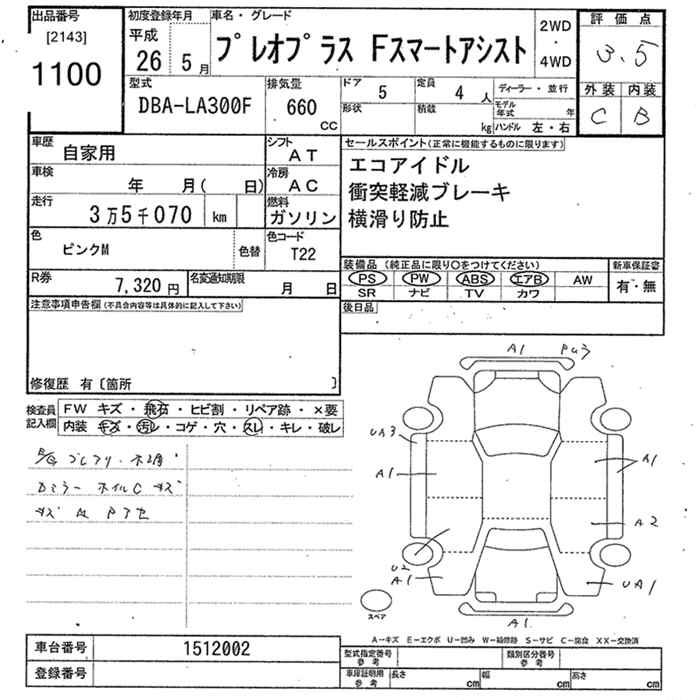 出品番号
[2143]
1100
初度登録年月
平成
26 5月
車名・グレード
プレオプラス Fスマートアシスト
2WD
・
4WD
評価点
3.5
外装 内装
C B
型式
DBA-LA300F
排気量
660
cc
ドア 5
形状
定員 4 人
積載 kg
ディーラー・並行
モデル年式 年
ハンドル 左・右
車歴
自家用
シフト
AT
車検
年 月( 日)
冷房
AC
走行
3万5千070 km
燃料
ガソリン
色
ピンクM
色替
色コード
T22
R券
7,320円
名変通知期限
月 日
セールスポイント(正常に機能するものに限ります)
エコアイドル
衝突軽減ブレーキ
横滑り防止
装備品(純正品に限り○をつけてください)
PS PW ABS エアB AW
SR ナビ TV カワ
新車保証書
有・無
後日品
注意事項申告欄(不具合内容等は具体的に記入して下さい)
修復歴 有〔箇所 〕
検査員記入欄
FW キズ・飛石・ヒビ割・リペア跡・×要
内装 キズ・汚レ・コゲ・穴・スレ・キレ・破レ
Dミラー ホイルC キズ
A1
UA3
A1
A1
A2
U2
A1
UA1
A1
スペア
A-キズ E-エクボ U-凹み W-補修跡 S-サビ C-腐食 XX-交換済
車台番号 1512002
登録番号
型式指定番号
参考
類別区分番号
参考
車庫証明用
参考
長さ cm 幅 cm 高さ cm